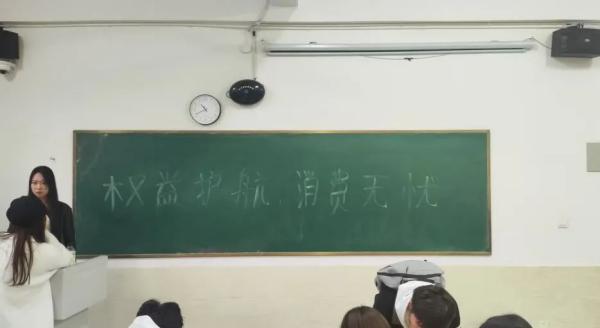 权益护航,消费无忧